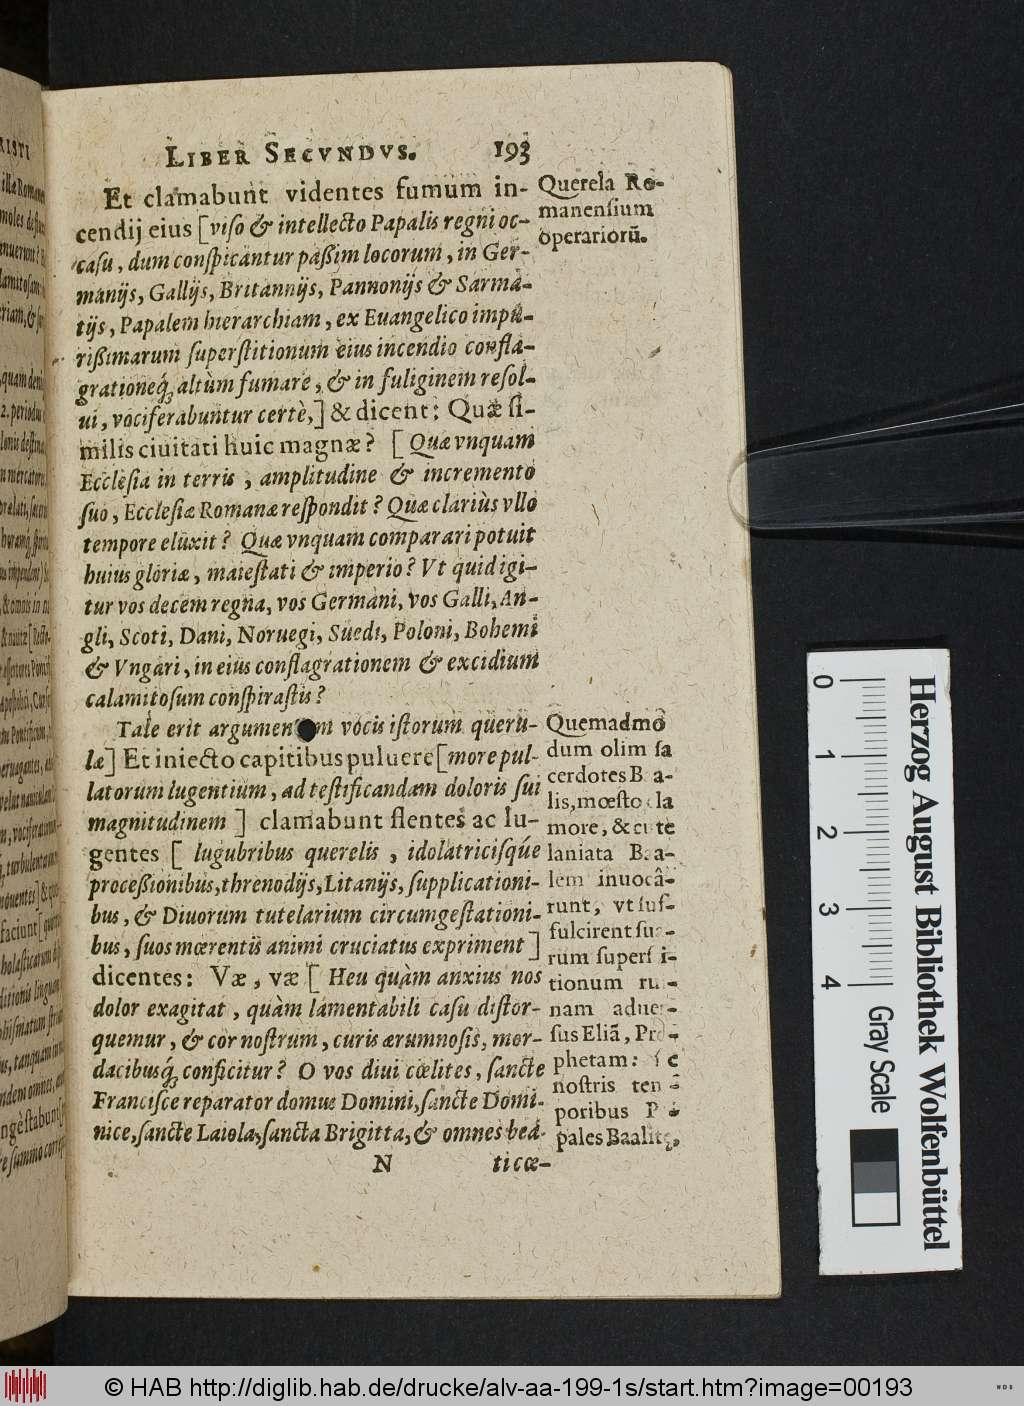 LIBER SECVNDVS. 193
Et clamabunt videntes fumum in-
cendij eius [viſo & intellecto Papalis regni oc-
caſu, dum conſpicantur paßim locorum, in Ger-
manijs, Gallijs, Britannijs, Pannonijs & Sarma-
tijs, Papalem hierarchiam, ex Euangelico impu-
rißimarum ſuperſtitionum eius incendio confla-
grationeq́, altùm fumare, & in fuliginem reſol-
ui, vociferabuntur certè,] & dicent: Quæ ſi-
milis ciuitati huic magnæ? [Quæ vnquam
Eccleſia in terris, amplitudine & incremento
ſuo, Eccleſiæ Romanæ reſpondit? Quæ clariùs vllo
tempore eluxit? Quæ vnquam comparari potuit
huius gloriæ, maieſtati & imperio? Vt quid igi-
tur vos decem regna, vos Germani, vos Galli, An-
gli, Scoti, Dani, Noruegi, Suedi, Poloni, Bohemi
& Vngari, in eius conflagrationem & excidium
calamitoſum conſpiraſtis?
Tale erit argumen m vocis iſtorum queru-
læ] Et iniecto capitibus puluere [more pul-
latorum lugentium, ad teſtificandam doloris ſui
magnitudinem] clamabunt flentes ac lu-
gentes [lugubribus querelis, idolatriciſq́ue
proceßionibus, threnodijs, Litanijs, ſupplicationi-
bus, & Diuorum tutelarium circumgeſtationi-
bus, ſuos mœrentis animi cruciatus expriment]
dicentes: Væ, væ [Heu quàm anxius nos
dolor exagitat, quàm lamentabili caſu diſtor-
quemur, & cor noſtrum, curis ærumnoſis, mor-
dacibusq́, conficitur? O vos diui cœlites, ſancte
Franciſce reparator domus Domini, ſancte Domi-
nice, ſancte Laiola, ſancta Brigitta, & omnes bea-
N ticæ-
Querela Ro-
manenſium
operariorũ.
Quemadmo
dum olim ſa
cerdotes B a-
lis, mœſto cla
more, & cu te
laniata B a-
lem inuocâ-
runt, vt ſuſ-
fulcirent ſuo-
rum ſuperſ i-
tionum ru -
nam aduer-
ſus Eliã, Pro-
phetam: ſ c
noſtris tem
poribus P
pales Baalitę,
Herzog August Bibliothek Wolfenbüttel
0 1 2 3 4
Gray Scale
© HAB http://diglib.hab.de/drucke/alv-aa-199-1s/start.htm?image=00193